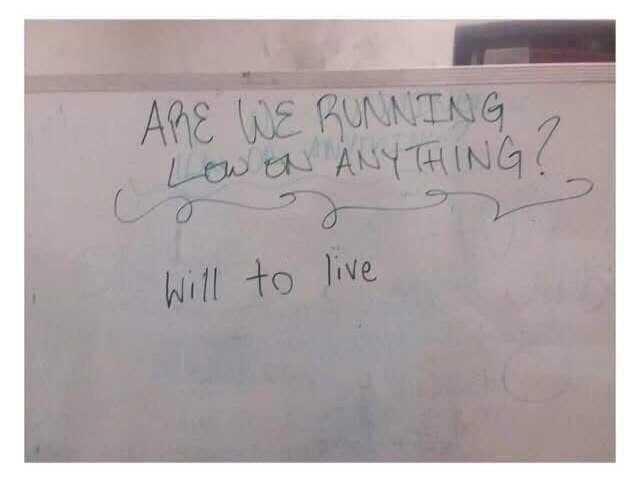 ARE WE RUNNING
LOW ON ANYTHING?
Will to live